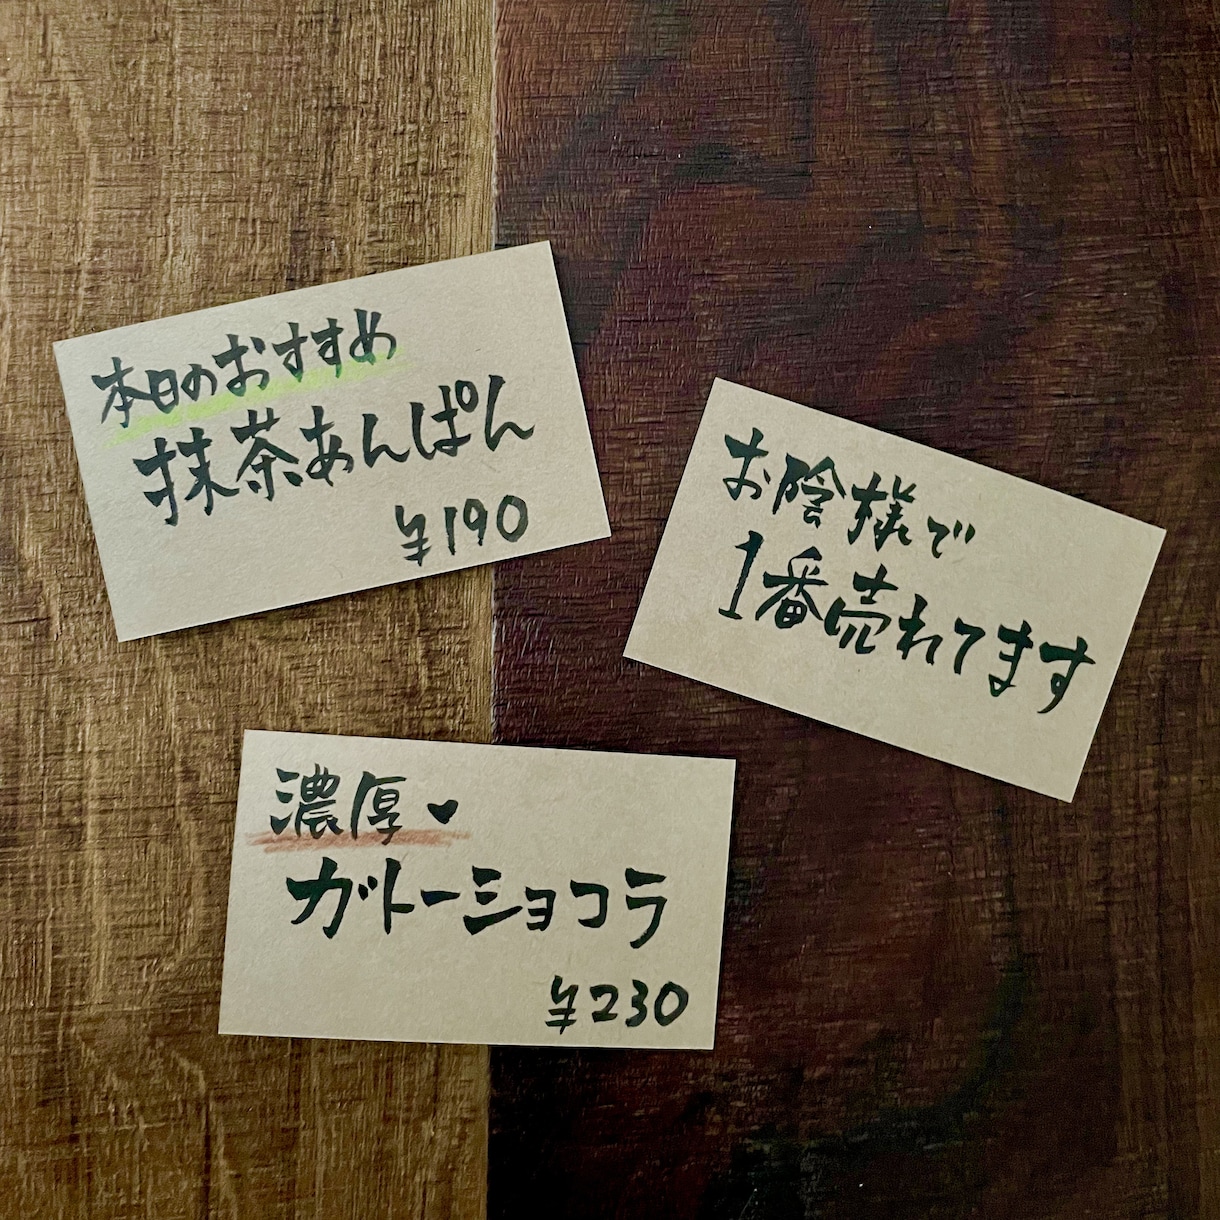 本日のおすすめ
抹茶あんぱん
¥190
お陰様で
1番売れてます
濃厚♥
ガトーショコラ
¥230